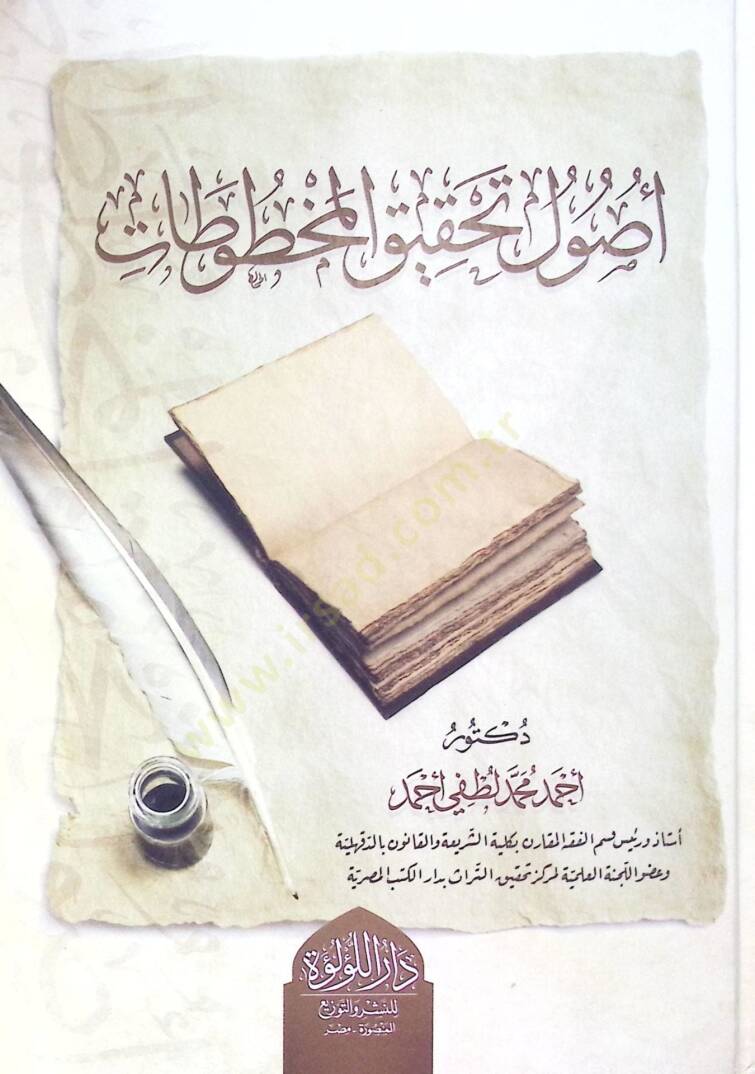 أُصُولُ تَحْقِيقِ المَخْطُوطَاتِ
دُكْتُورُ
أَحْمَد مُحَمَّد لُطْفِي أَحْمَد
أستاذ ورئيس قسم الفقه المقارن بكلية الشريعة والقانون بالدقهلية
وعضو اللجنة العلمية لمركز تحقيق التراث بدار الكتب المصرية
دَارُ اللُّؤْلُؤَة
لِلنَّشْرِ وَالتَّوْزِيعِ
المنصورة - مصر
www.irsad.com.tr